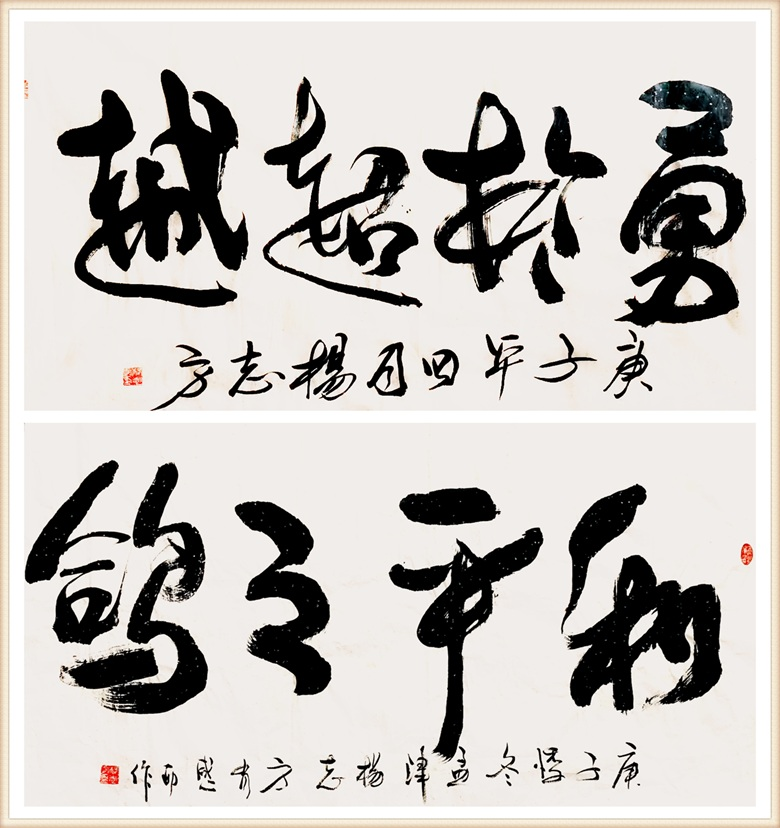 勇於超越
庚子年四月楊志方
和平之鸽
庚子冬孟津楊志方有感而作